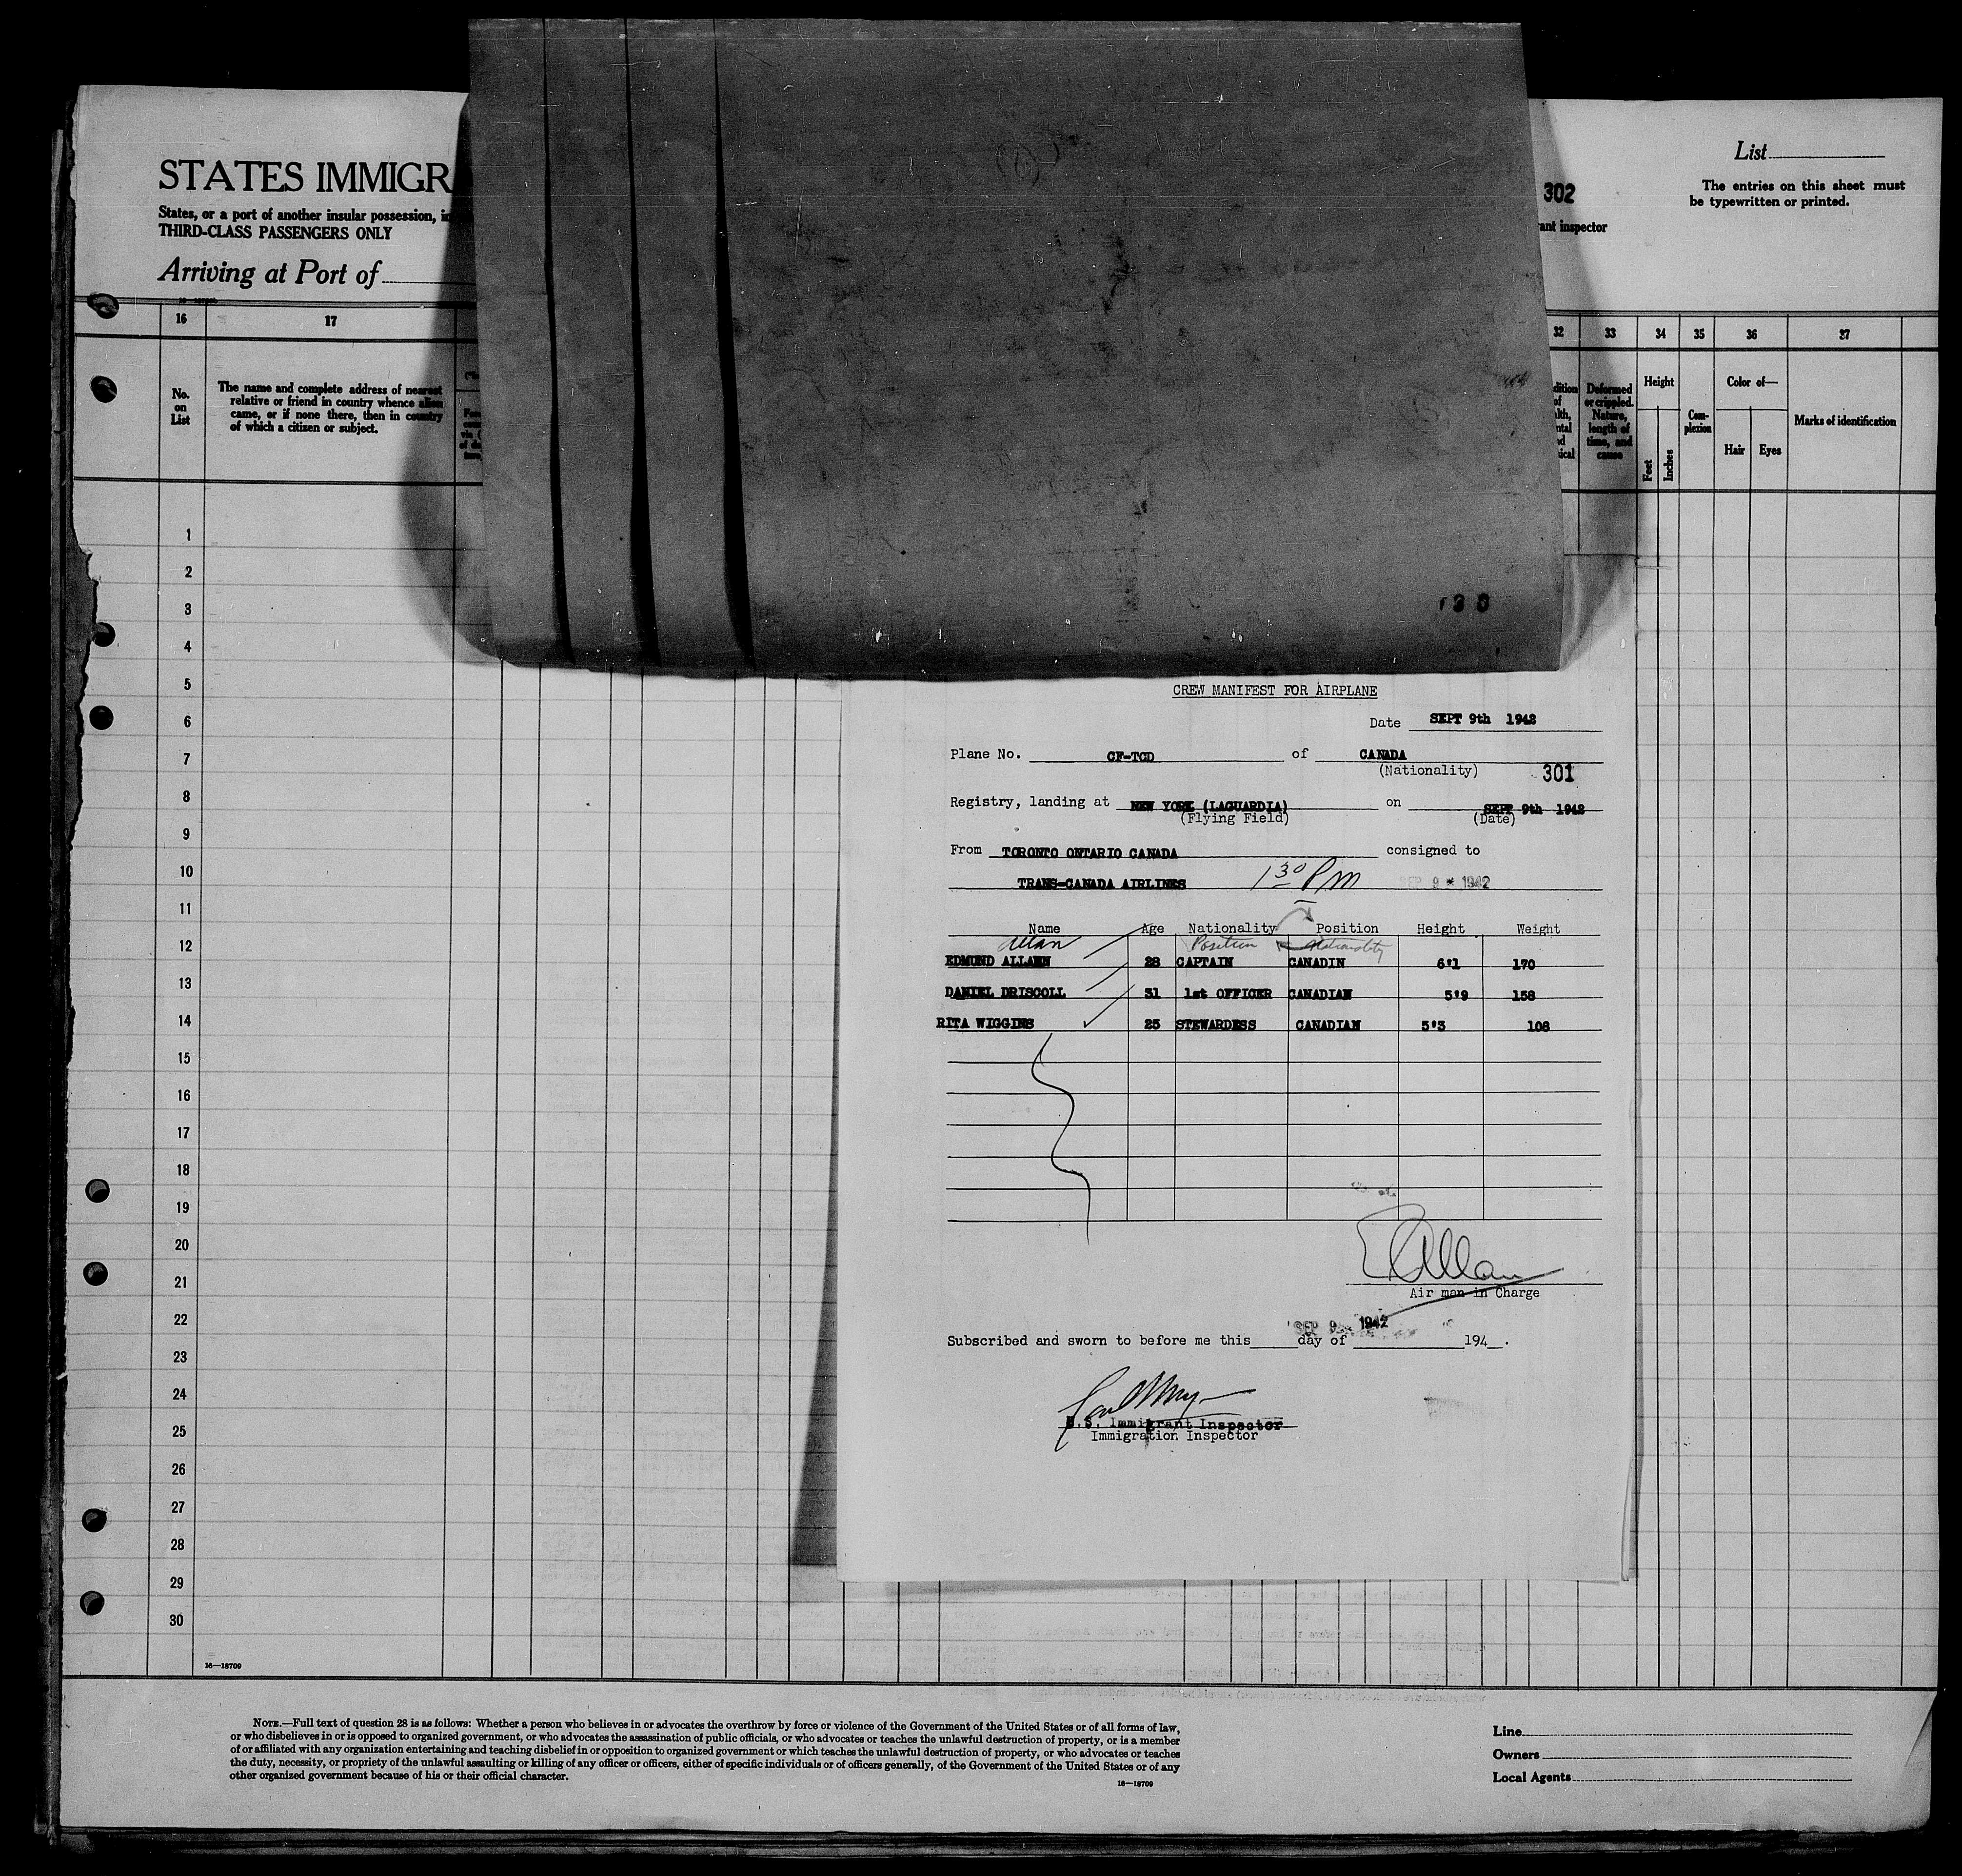 STATES IMMIGR
States, or a port of another insular possession, in
THIRD-CLASS PASSENGERS ONLY
Arriving at Port of
302
ant inspector
List
The entries on this sheet must
be typewritten or printed.
16 17 32 33 34 35 36 37
No.
on
List
The name and complete address of nearest
relative or friend in country whence alien
came, or if none there, then in country
of which a citizen or subject.
Deformed
or crippled.
Nature,
length of
time, and
cause
Height
Feet
Inches
Com-
plexion
Color of—
Hair Eyes
Marks of identification
1
2
3
4
5
6
7
8
9
10
11
12
13
14
15
16
17
18
19
20
21
22
23
24
25
26
27
28
29
30
16—18709
CREW MANIFEST FOR AIRPLANE
Date SEPT 9th 1942
Plane No. CF-TCD of CANADA
(Nationality) 301
Registry, landing at NEW YORK (LAGUARDIA) on SEPT 9th 1942
(Flying Field) (Date)
From TORONTO ONTARIO CANADA consigned to
TRANS-CANADA AIRLINES 1 30 PM SEP 9 * 1942
Name Age Nationality Position Height Weight
Allan Position Nationality
EDMUND ALLAEN 28 CAPTAIN CANADIN 6'1 170
DANIEL DRISCOLL 31 1st OFFICER CANADIAN 5'9 158
RITA WIGGINS 25 STEWARDESS CANADIAN 5'3 108
E Allan
Air man in Charge
SEP 9 1942
Subscribed and sworn to before me this day of 194 .
U.S. Immigrant Inspector
Immigration Inspector
NOTE.—Full text of question 28 is as follows: Whether a person who believes in or advocates the overthrow by force or violence of the Government of the United States or of all forms of law,
or who disbelieves in or is opposed to organized government, or who advocates the assassination of public officials, or who advocates or teaches the unlawful destruction of property, or is a member
of or affiliated with any organization entertaining and teaching disbelief in or opposition to organized government or which teaches the unlawful destruction of property, or who advocates or teaches
the duty, necessity, or propriety of the unlawful assaulting or killing of any officer or officers, either of specific individuals or of officers generally, of the Government of the United States or of any
other organized government because of his or their official character.
16—18709
Line
Owners
Local Agents